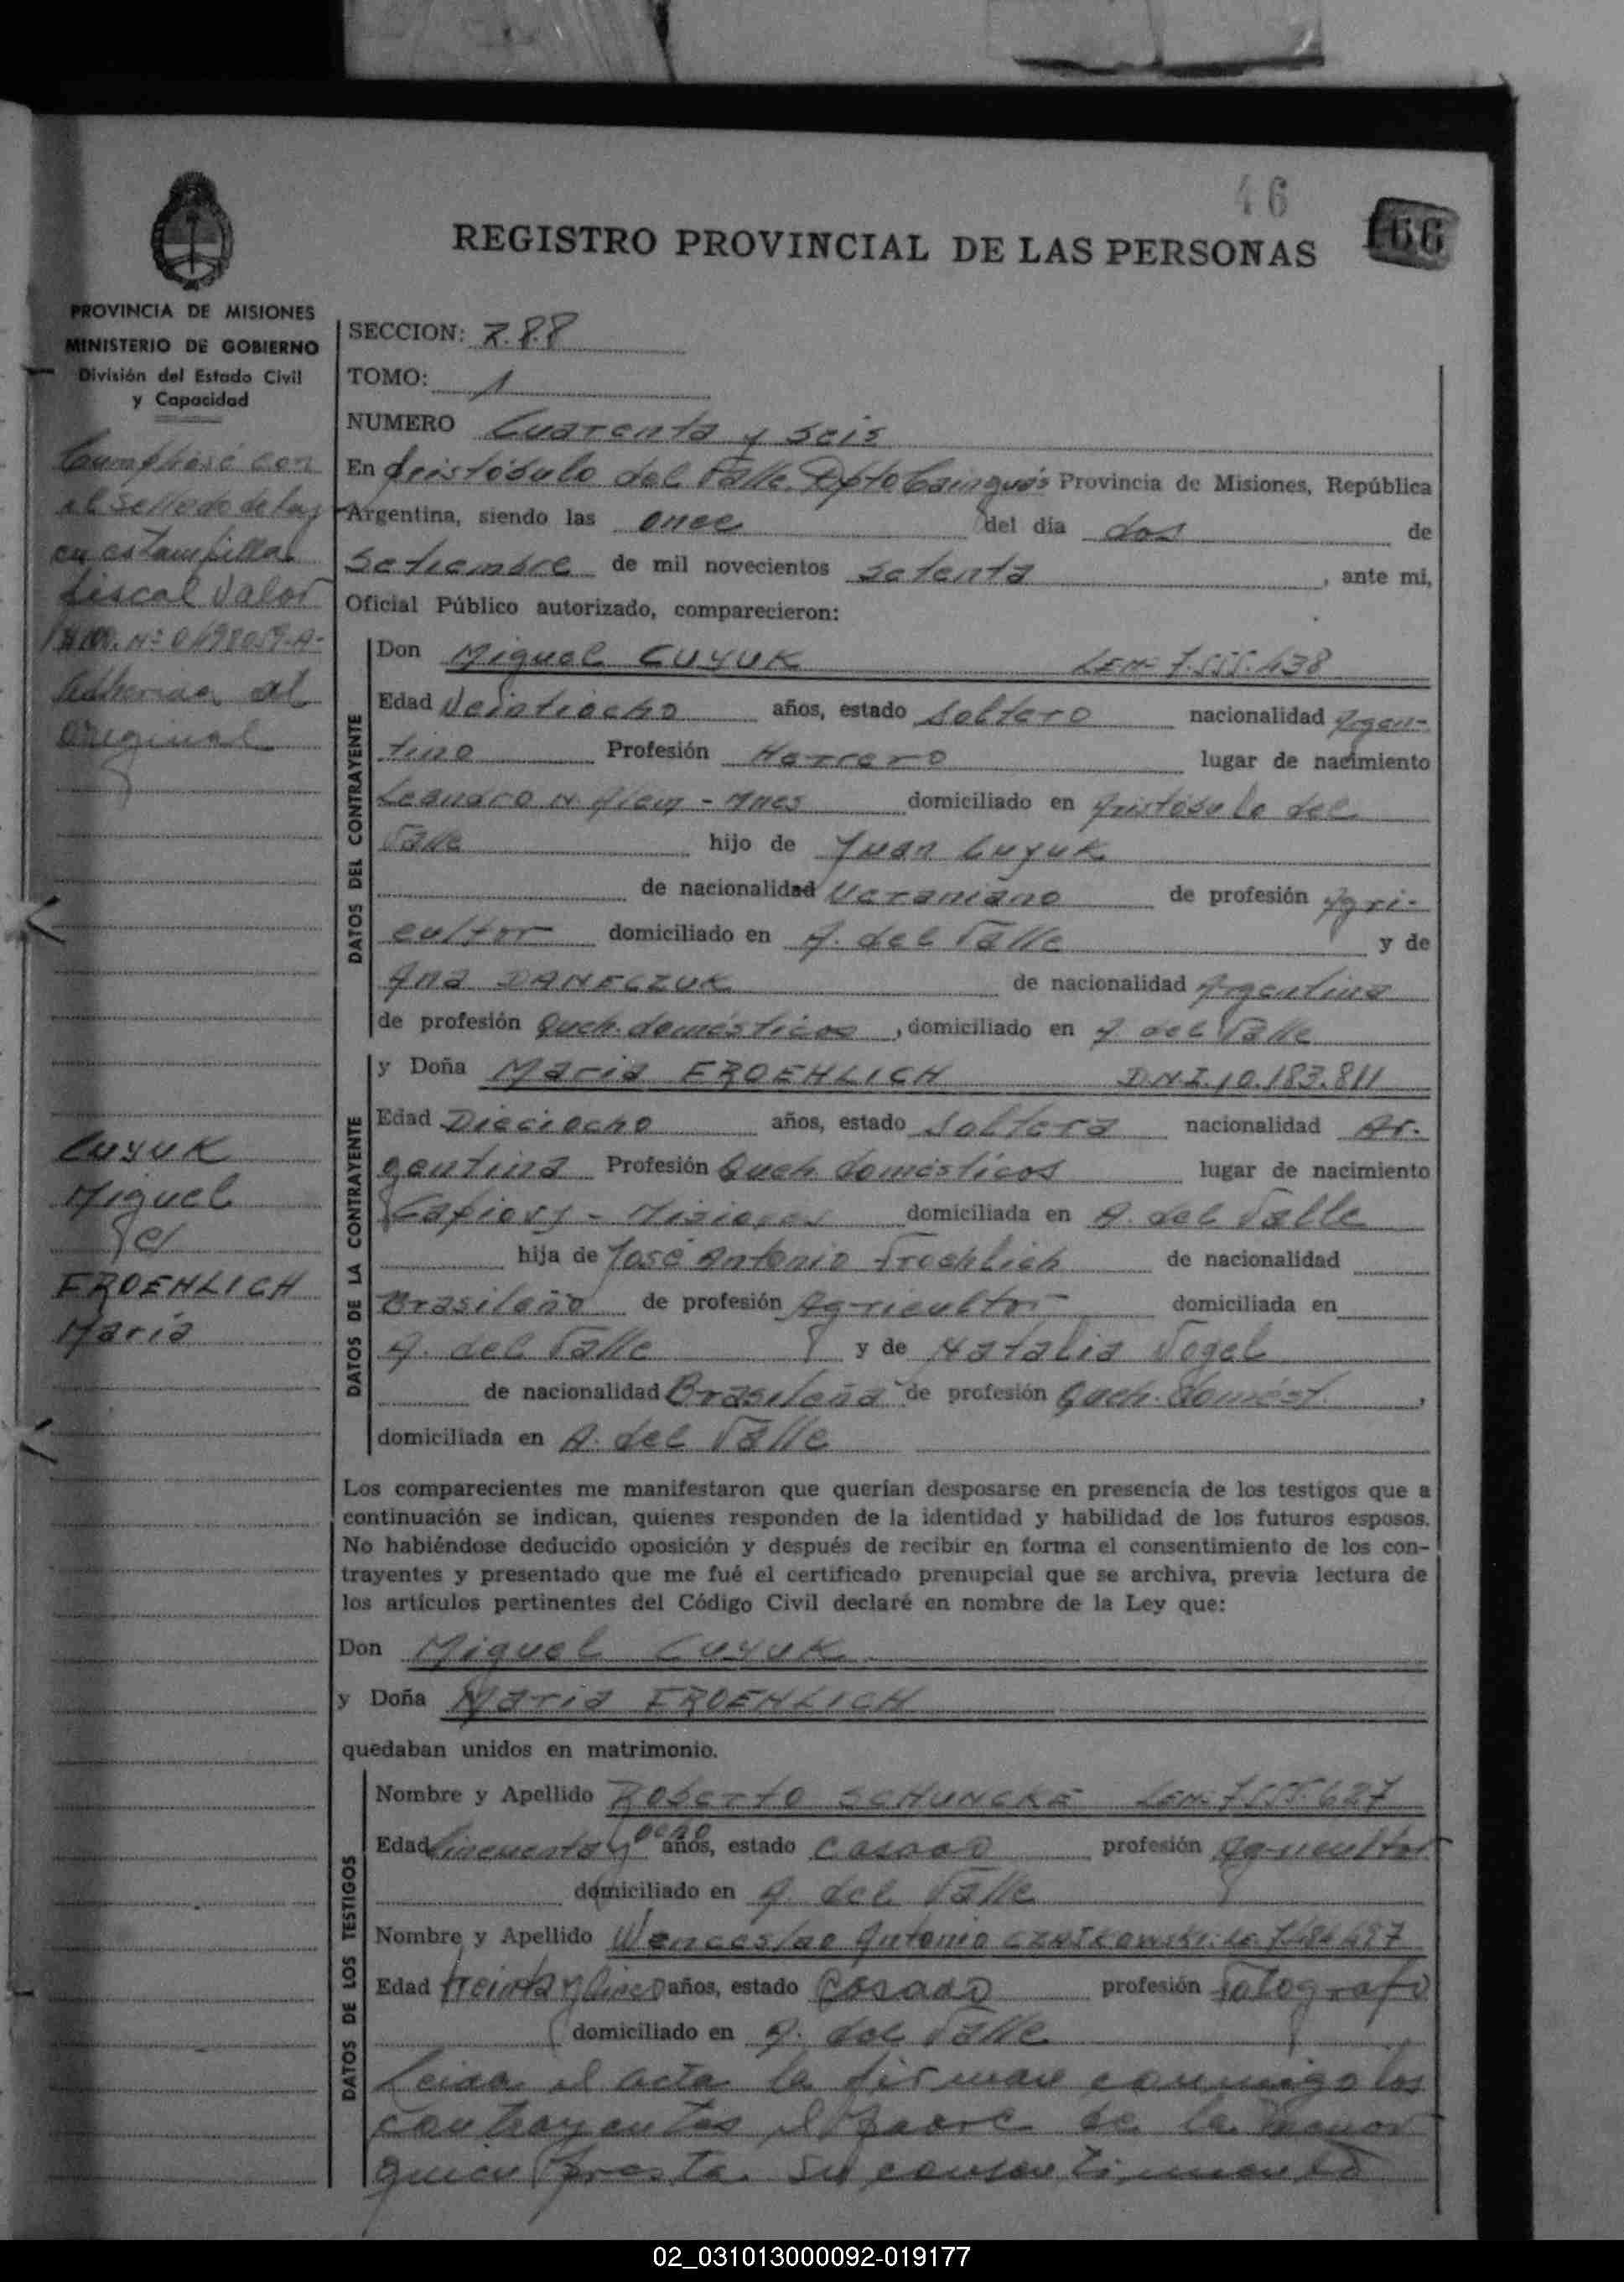 46
66
REGISTRO PROVINCIAL DE LAS PERSONAS
PROVINCIA DE MISIONES
MINISTERIO DE GOBIERNO
División del Estado Civil
y Capacidad
Cumplase con
el sellado de ley
en estampilla
fiscal valor
adherida al
original
CUYUK
Miguel
c/
FROEHLICH
María
SECCION: R.8.8
TOMO: 1
NUMERO Cuarenta y Seis
En Aristóbulo del Valle Dpto Cainguás Provincia de Misiones, República
Argentina, siendo las once del día dos de
Setiembre de mil novecientos setenta, ante mi,
Oficial Público autorizado, comparecieron:
DATOS DEL CONTRAYENTE
Don Miguel CUYUK LEM- 7.555.438
Edad Veintiocho años, estado Soltero nacionalidad Argen-
tino Profesión Herrero lugar de nacimiento
Leandro N. Alem - Mnes domiciliado en Aristóbulo del
Valle hijo de Juan Cuyuk
de nacionalidad Ucraniano de profesión Agri-
cultor domiciliado en A. del Valle y de
Ana DANECZUK de nacionalidad Argentina
de profesión Queh. domésticos, domiciliado en A del Valle
DATOS DE LA CONTRAYENTE
y Doña Maria FROEHLICH D.N.I. 10.183.811
Edad Dieciocho años, estado Soltera nacionalidad Ar-
gentina Profesión Queh. domésticos lugar de nacimiento
Capiovy - Misiones domiciliada en A. del Valle
hija de José Antonio Froehlich de nacionalidad
Brasileño de profesión Agricultor domiciliada en
A. del Valle y de Natalia Vogel
de nacionalidad Brasileña de profesión Queh. domést.,
domiciliada en A. del Valle
Los comparecientes me manifestaron que querían desposarse en presencia de los testigos que a
continuación se indican, quienes responden de la identidad y habilidad de los futuros esposos.
No habiéndose deducido oposición y después de recibir en forma el consentimiento de los con-
trayentes y presentado que me fué el certificado prenupcial que se archiva, previa lectura de
los artículos pertinentes del Código Civil declaré en nombre de la Ley que:
Don Miguel CUYUK
y Doña Maria FROEHLICH
quedaban unidos en matrimonio.
DATOS DE LOS TESTIGOS
Nombre y Apellido Roberto SCHUNCKE LEM- 7.555.627
Edad Cincuenta y ocho años, estado Casado profesión Agricultor
domiciliado en A. del Valle
Nombre y Apellido Wenceslao Antonio
Edad treinta y cinco años, estado Casado profesión Fotografo
domiciliado en A. del Valle
Leida el acta la firman conmigo los
contrayentes el padre de la menor
quien presta su consentimiento
02_031013000092-019177